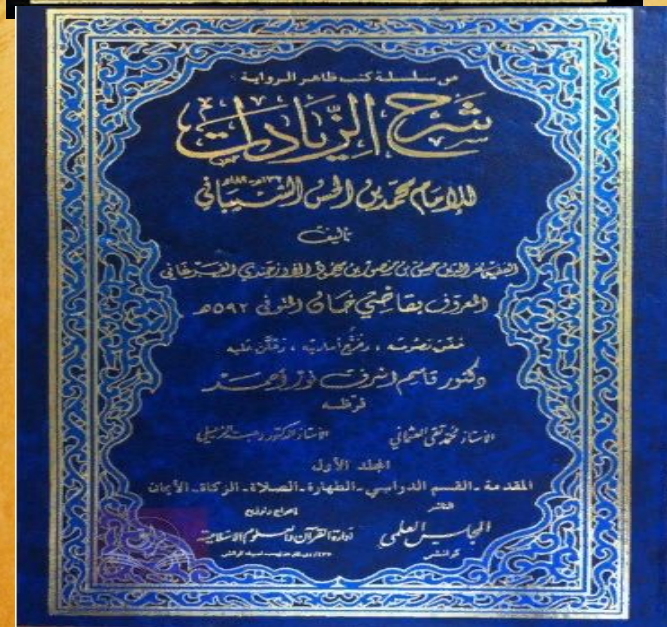 من سلسلة كتب ظاهر الرواية
شرح الزيادات
للإمام محمد بن الحسن الشيباني ١٣٢هـ-١٨٩هـ
تأليف
الفقيه فخر الدين حسن بن منصور بن محمود الأوزجندي الفرغاني
المعروف بقاضي خان المتوفى ٥٩٢هـ
حقق نصوصه، وخرج أحاديثه، وعلق عليه
دكتور قاسم أشرف نور أحمد
قرظه
الأستاذ محمد تقي العثماني الأستاذ الدكتور وهبة الزحيلي
المجلد الأول
المقدمة - القسم الدراسي - الطهارة - الصلاة - الزكاة - الأيمان
الناشر إخراج وتوزيع
المجلس العلمي إدارة القرآن والعلوم الإسلامية
كراتشي